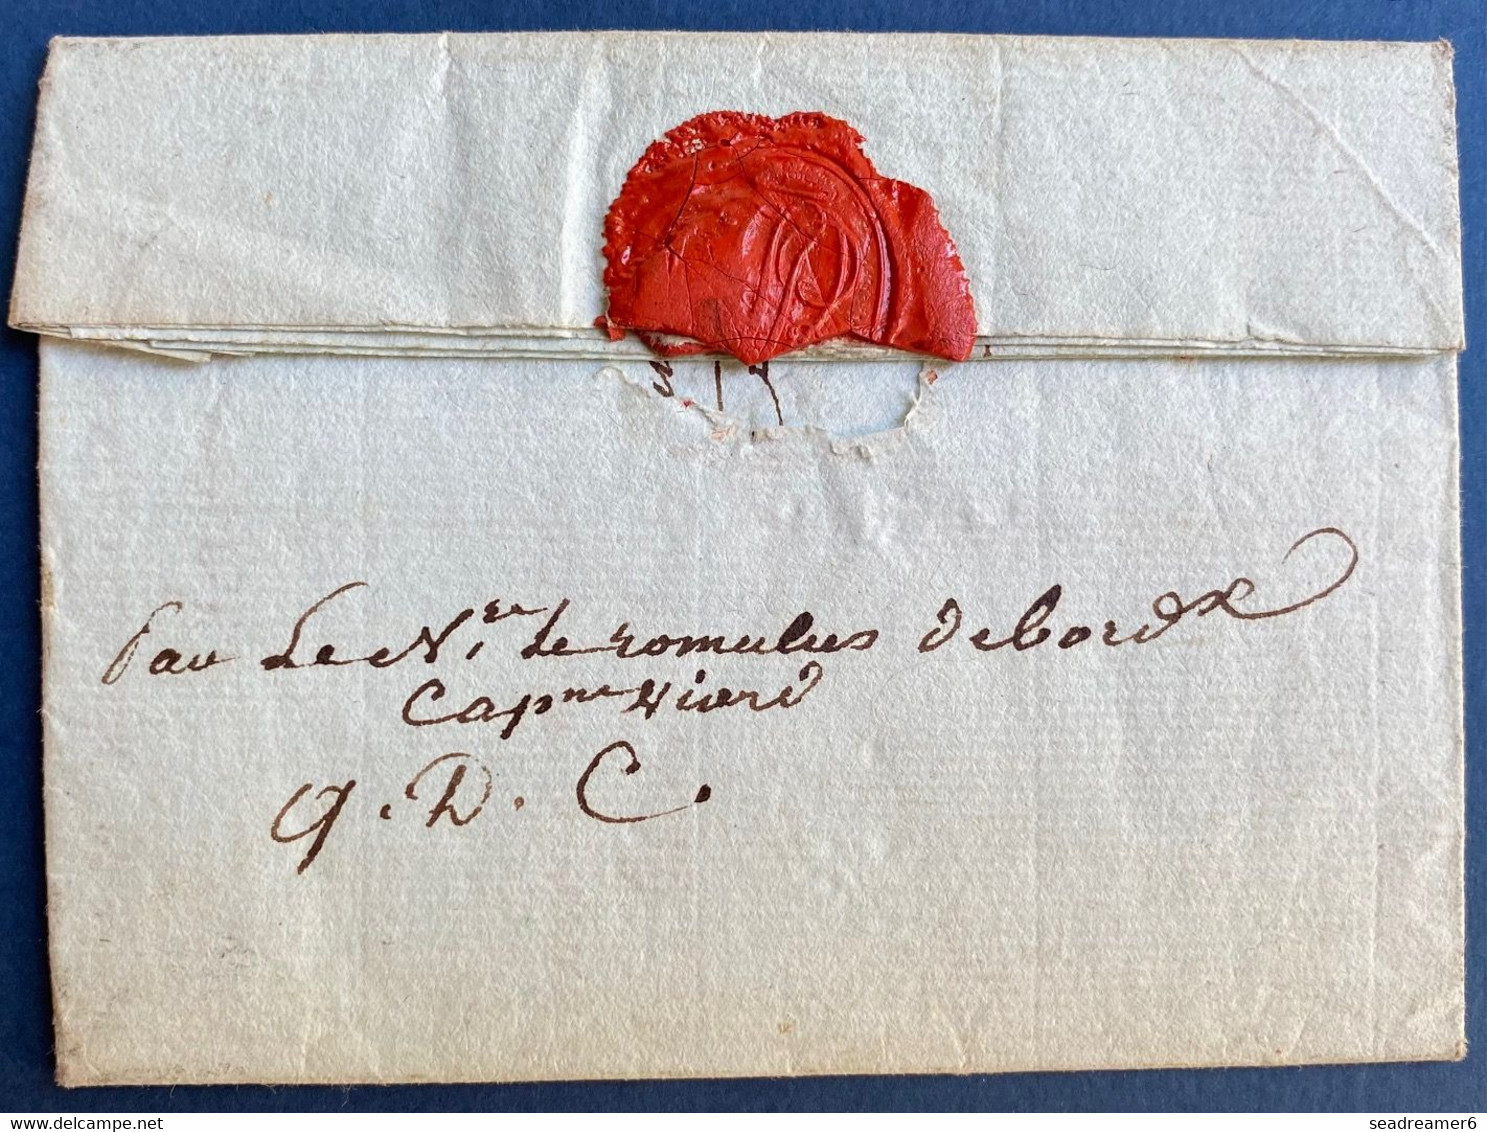 Par Le N.re le romulus de bordx
Capne viard
q. D. C.
delcampe.net
seadreamer6